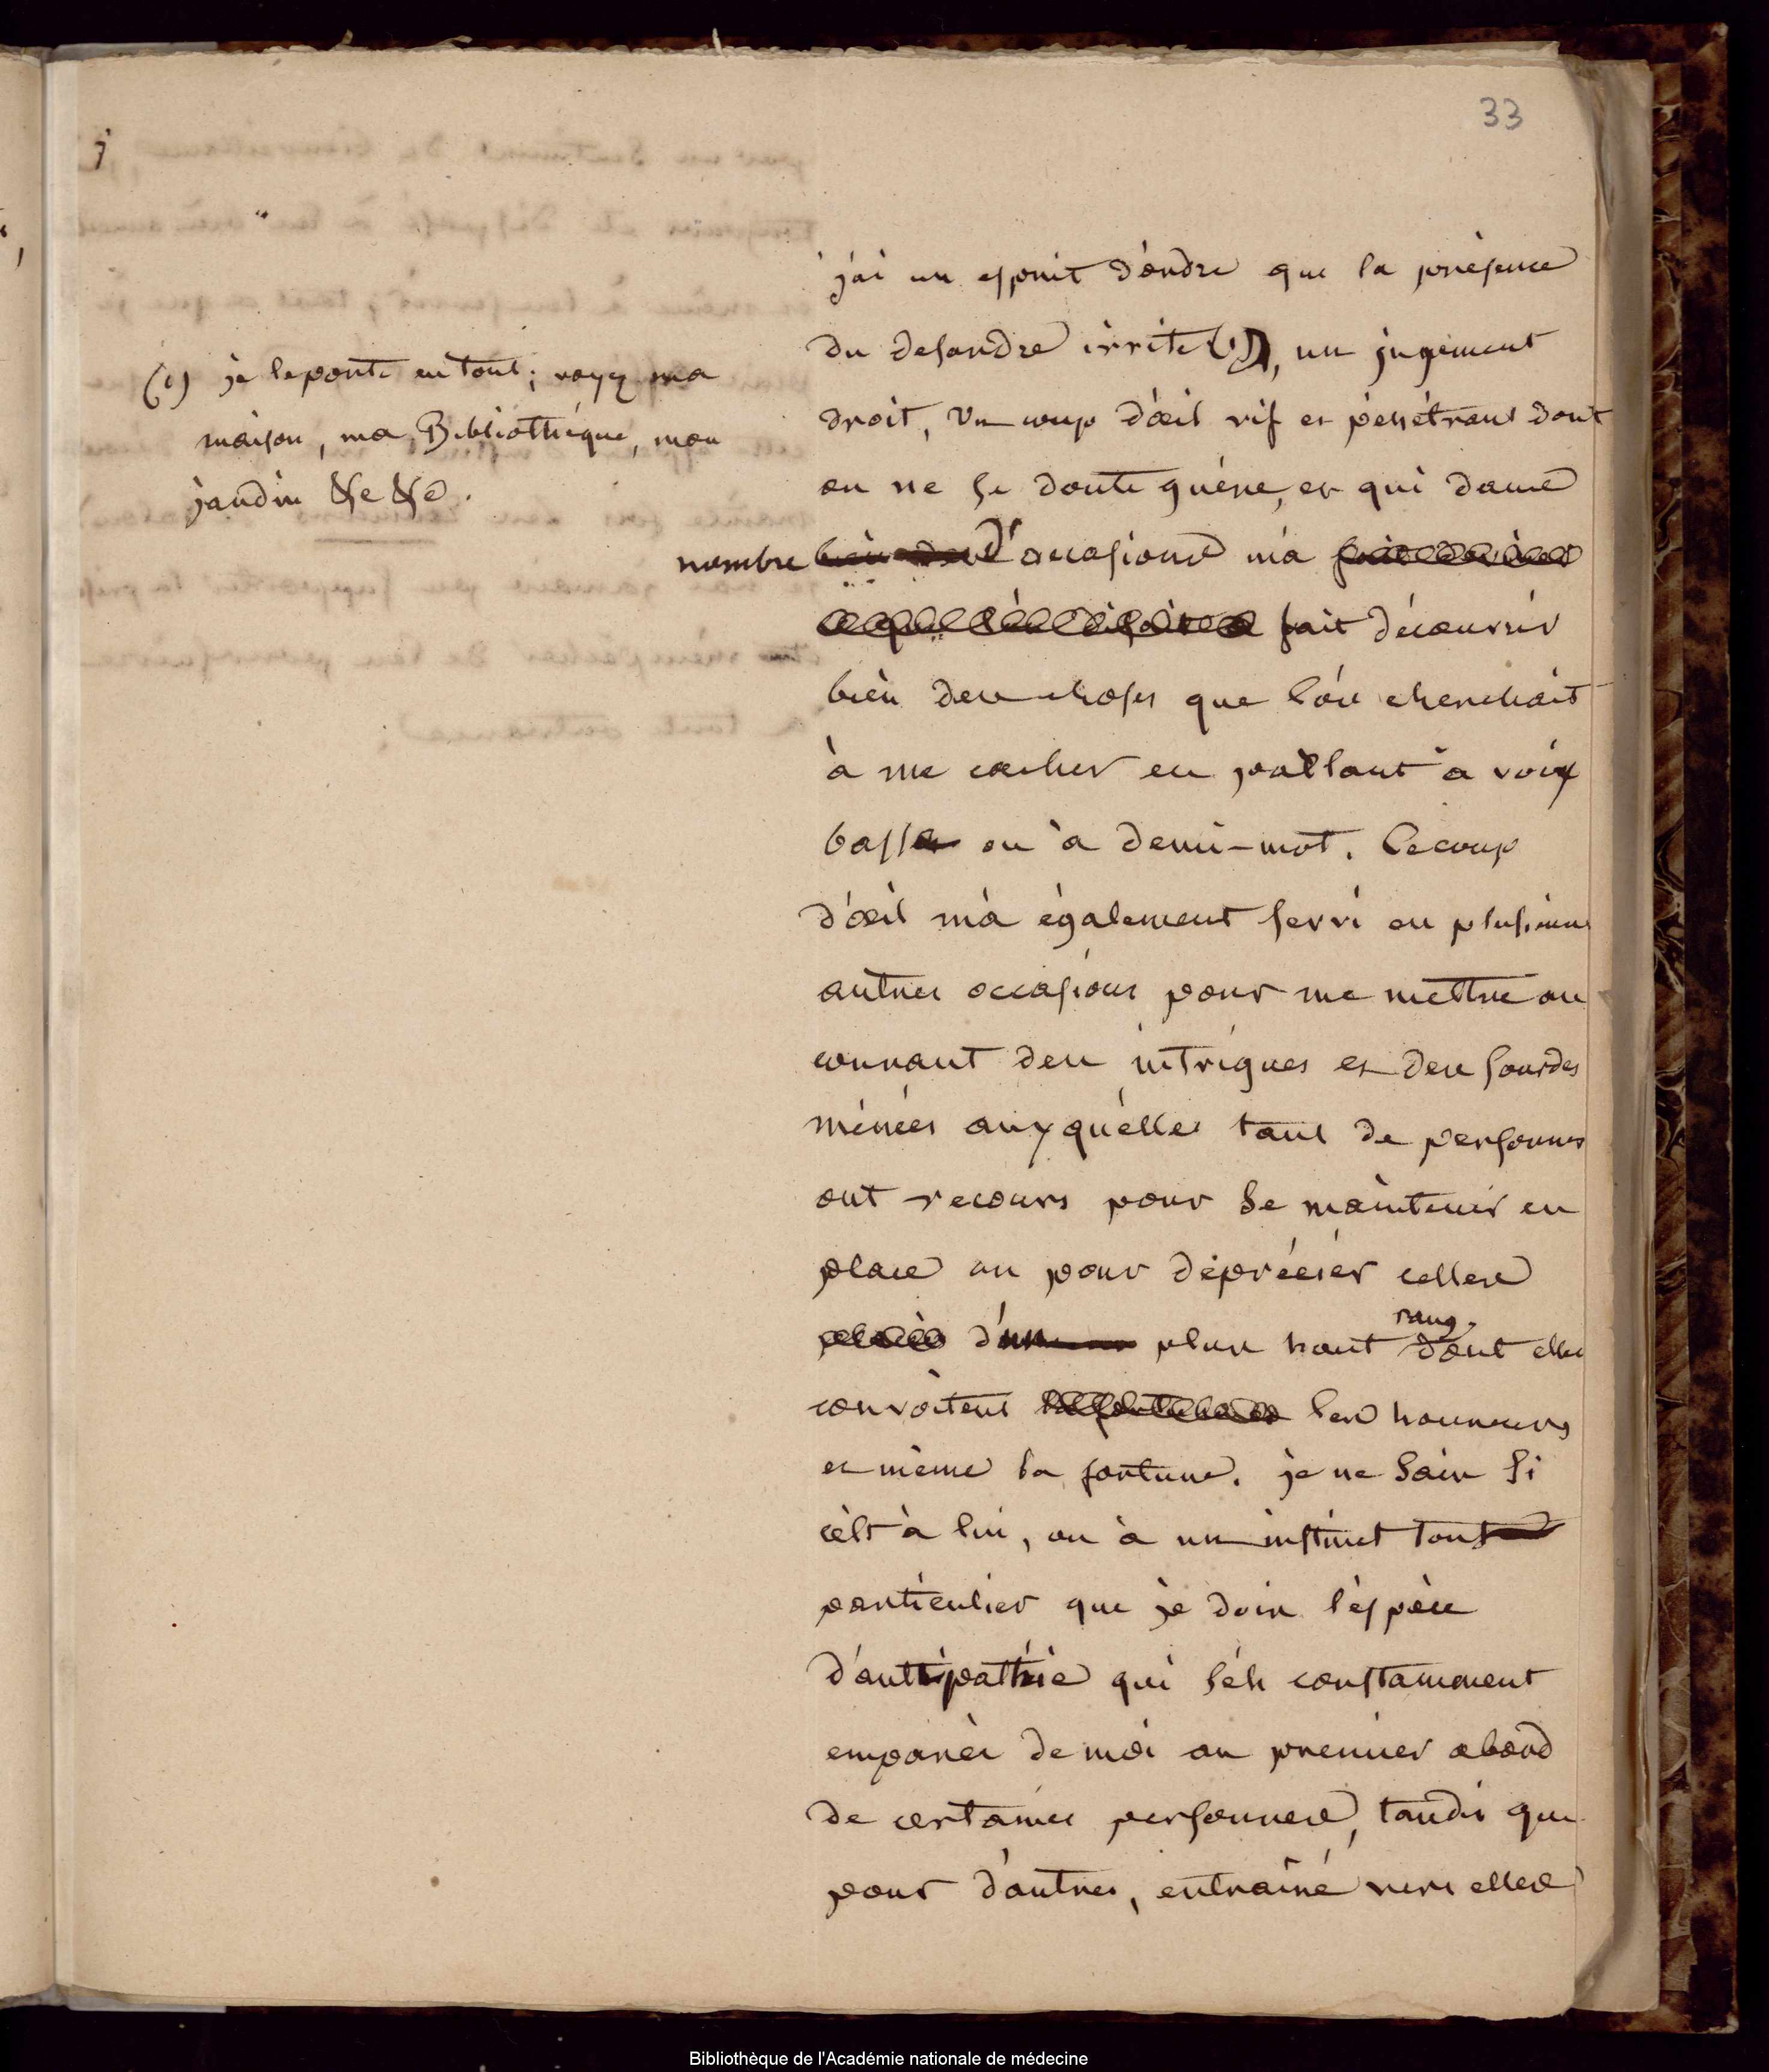 33
j'ai un esprit d'ordre que la présence
du desordre irrite (1), un jugement
droit, un coup d'œil vif et pénétrant dont
on ne se doute guère, et qui dans
nombre d'occasions m'a
fait découvrir
bien des choses que l'on cherchait
à me cacher en parlant à voix
basse ou à demi-mot. Ce coup
d'œil m'a également servi en plusieurs
autres occasions pour me mettre au
courant des intrigues et des sourdes
menées auxquelles tant de personnes
ont recours pour se maintenir en
place ou pour déprécier celles
d'un plus haut rang dont elles
convoitent les honneurs
et même la fortune. je ne sais si
c'est à lui, ou à un instinct tout
particulier que je dois l'espèce
d'antipathie qui s'est constamment
emparée de moi au premier abord
de certaines personnes, tandis que
pour d'autres, entraîné vers elles
(1) je le porte en tout; voyez ma
maison, ma Bibliothéque, mon
jardin &c &c.
Bibliothèque de l'Académie nationale de médecine